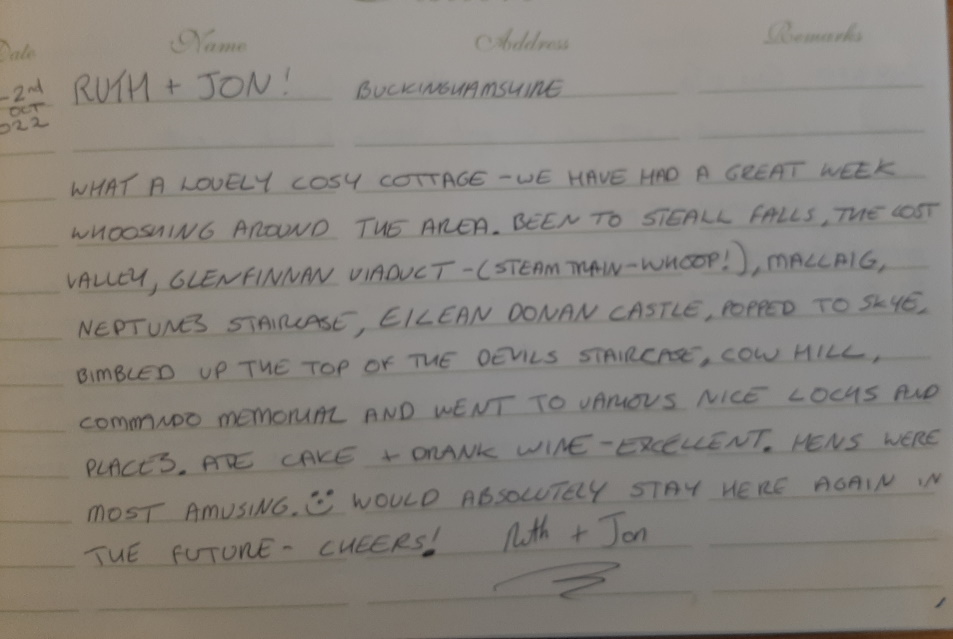 Date Name Address Remarks
-2nd RUTH + JON! BUCKINGHAMSHIRE
OCT
022
WHAT A LOVELY COSY COTTAGE - WE HAVE HAD A GREAT WEEK
WHOOSHING AROUND THE AREA. BEEN TO STEALL FALLS, THE LOST
VALLEY, GLENFINNAN VIADUCT - (STEAM TRAIN - WHOOP!), MALLAIG,
NEPTUNES STAIRCASE, EILEAN DONAN CASTLE, POPPED TO SKYE,
BIMBLED UP THE TOP OF THE DEVILS STAIRCASE, COW HILL,
COMMANDO MEMORIAL AND WENT TO VARIOUS NICE LOCHS AND
PLACES. ATE CAKE + DRANK WINE - EXCELLENT. HENS WERE
MOST AMUSING. WOULD ABSOLUTELY STAY HERE AGAIN IN
THE FUTURE - CHEERS! Ruth + Jon